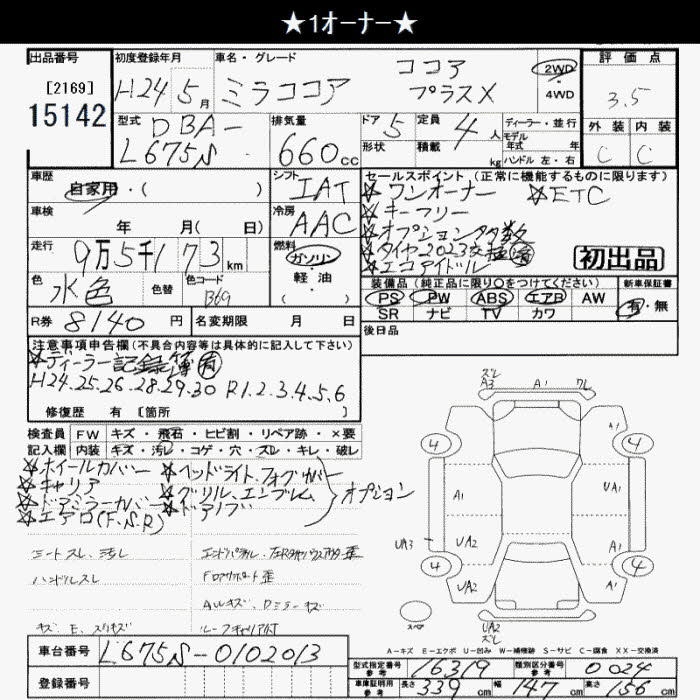 ★1オーナー★
出品番号 初度登録年月 車名・グレード 評価点
[2169]
15142
H24 5月 ミラココア ココア プラスX 2WD ・ 4WD 3.5
型式 排気量 ドア 5 定員 4人 ディーラー・並行 外装 内装
DBA-
L675S 660cc 形状 積載 kg モデル年式 年 ハンドル 左・右 C C
車歴 シフト セールスポイント(正常に機能するものに限ります)
自家用・( ) IAT ☆ワンオーナー ☆ETC
☆キーフリー
車検 年 月( 日) 冷房 AAC ☆オプション多数
走行 9万5千173km 燃料 ガソリン・軽油・( ) ☆タイヤ2023交換済
☆エコアイドル 初出品
色 水色 色替 色コード 装備品(純正品に限り○をつけてください) 新車保証書
PS PW ABS エアB AW 有・無
SR ナビ TV カワ
R券 8140円 名変期限 月 日 後日品
注意事項申告欄(不具合内容等は具体的に記入して下さい)
☆ディーラー記録簿有
H24.25.26.28.29.30 R1.2.3.4.5.6
修復歴 有 [箇所
検査員 FW キズ・飛石・ヒビ割・リペア跡・×要
記入欄 内装 キズ・汚レ・コゲ・穴・スレ・キレ・破レ
☆ホイールカバー ☆ヘッドライト、フォグカバー
☆キャリア ☆グリル、エンブレム オプション
☆ドアミラーカバー ☆ドアノブ
☆エアロ(F.S.R)
シートスレ、汚レ
ハンドルスレ Fロアサポート歪
AWキズ、Dミラーキズ
ルーフキャリア付
スレ
A3 A1 ワレ
4 4
A1 UA1
UA3 UA2 A1
4 4
UA2 A1
スペア UA2
スレ
A-キズ E-エクボ U-凹み W-補修跡 S-サビ C-腐食 XX-交換済
車台番号 L675S-0102013
登録番号
型式指定番号 参考 16319 類別区分番号 参考 0024
車庫証明用 参考 長さ 339cm 幅 147cm 高さ 156cm